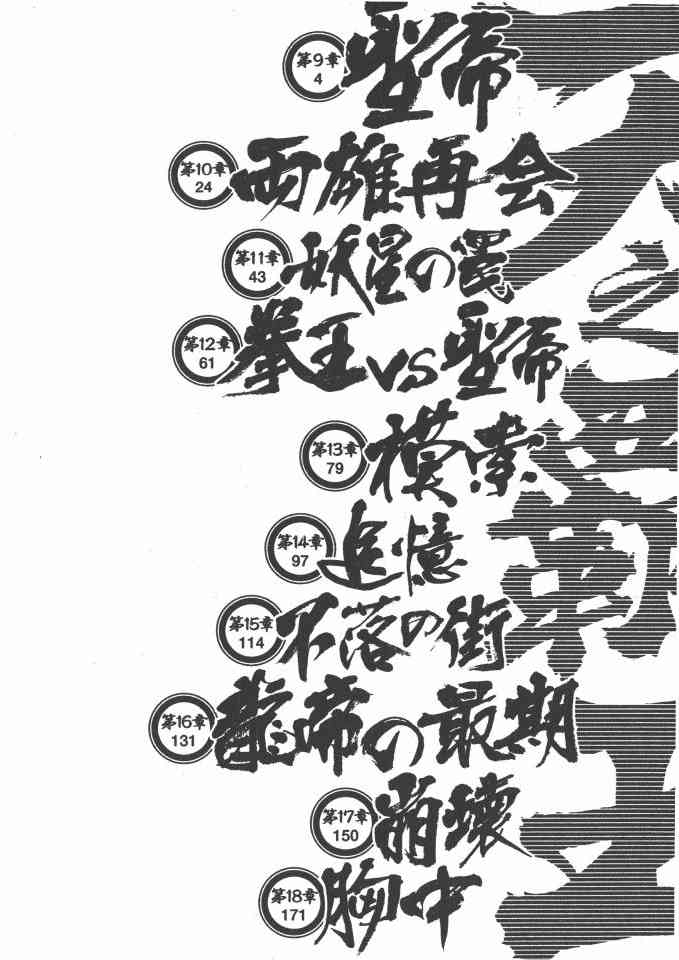 第9章
4
聖帝
第10章
24
両雄再会
第11章
43
妖星の罠
第12章
61
拳王vs聖帝
第13章
79
模索
第14章
97
追憶
第15章
114
不落の街
第16章
131
龍帝の最期
第17章
150
崩壊
第18章
171
胸中